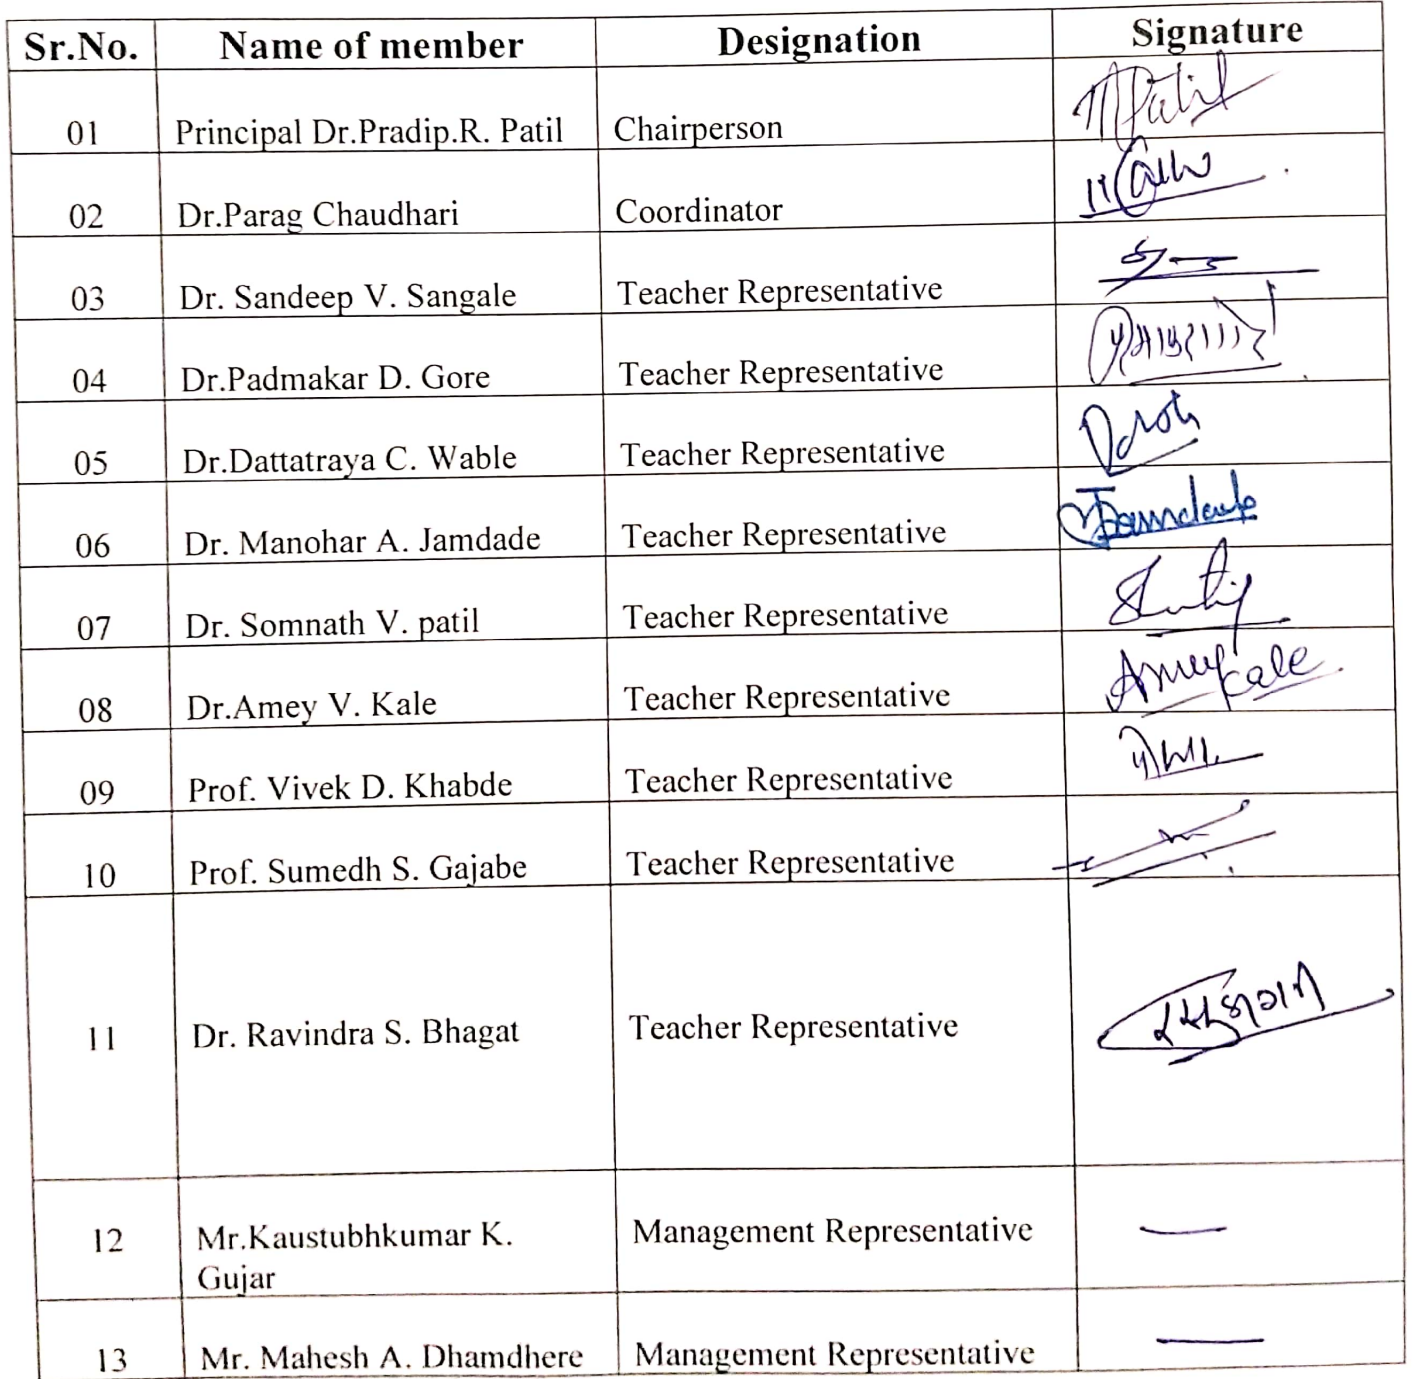 Sr.No. Name of member Designation Signature
01 Principal Dr.Pradip.R. Patil Chairperson
02 Dr.Parag Chaudhari Coordinator
03 Dr. Sandeep V. Sangale Teacher Representative
04 Dr.Padmakar D. Gore Teacher Representative
05 Dr.Dattatraya C. Wable Teacher Representative
06 Dr. Manohar A. Jamdade Teacher Representative
07 Dr. Somnath V. patil Teacher Representative
08 Dr.Amey V. Kale Teacher Representative Amey Kale
09 Prof. Vivek D. Khabde Teacher Representative
10 Prof. Sumedh S. Gajabe Teacher Representative
11 Dr. Ravindra S. Bhagat Teacher Representative
12 Mr.Kaustubhkumar K. Management Representative —
Gujar
13 Mr. Mahesh A. Dhamdhere Management Representative —